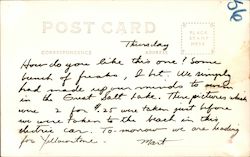 POST CARD
CORRESPONDENCE ADDRESS
PLACE
STAMP
HERE
Thursday
How do you like this one? Some
bunch of freaks, I bet. We simply
had made up our minds to swim
in the Great Salt Lake. These pictures which
were 3 for $.25 were taken just before
we were taken to the beach in this
electric car. To-morrow we are heading
for Yellowstone. Mart